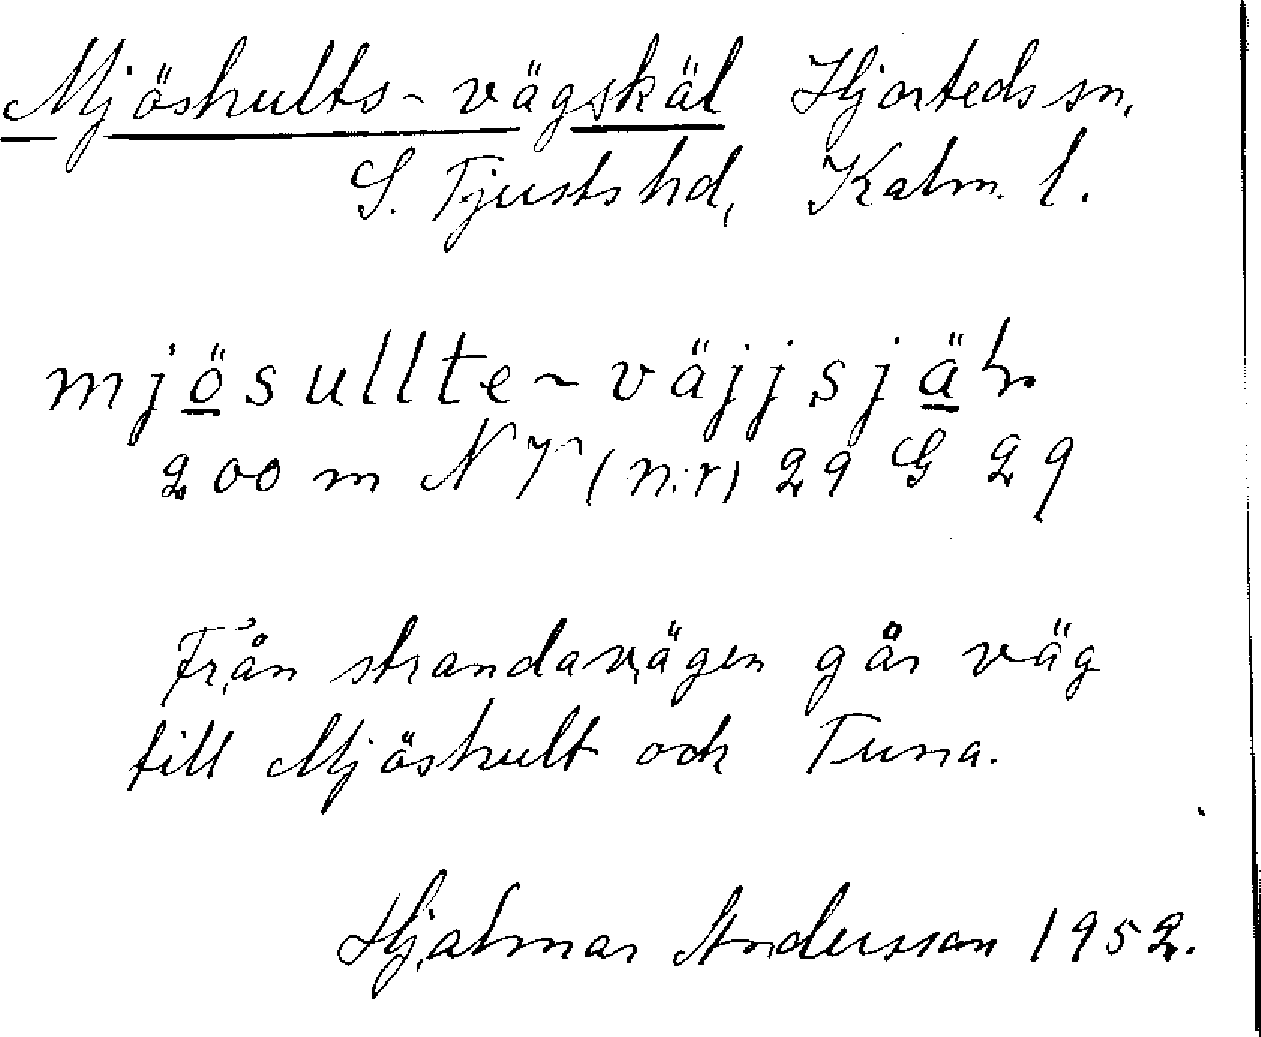 Mjöshults-vägskäl Hjorteds sn,
S. Tjusts hd, Kalm. l.
mjösullte-väjjsjäl
200 m NV (n:r) 29 G 29
Från strandavägen går väg
till Mjöshult och Tuna.
Hjalmar Andersson 1952.